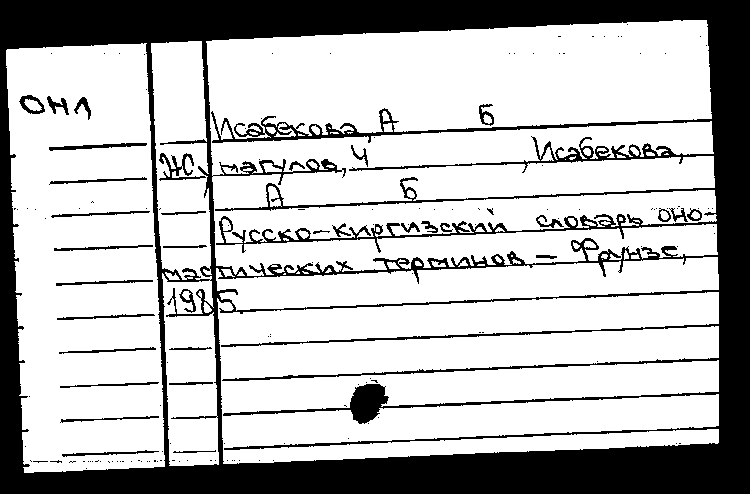 ОНЛ
Исабекова, А Б
Жумагулов, Ч , Исабекова,
А Б
Русско-киргизский словарь оно-
мастических терминов. – Фрунзе,
1985.